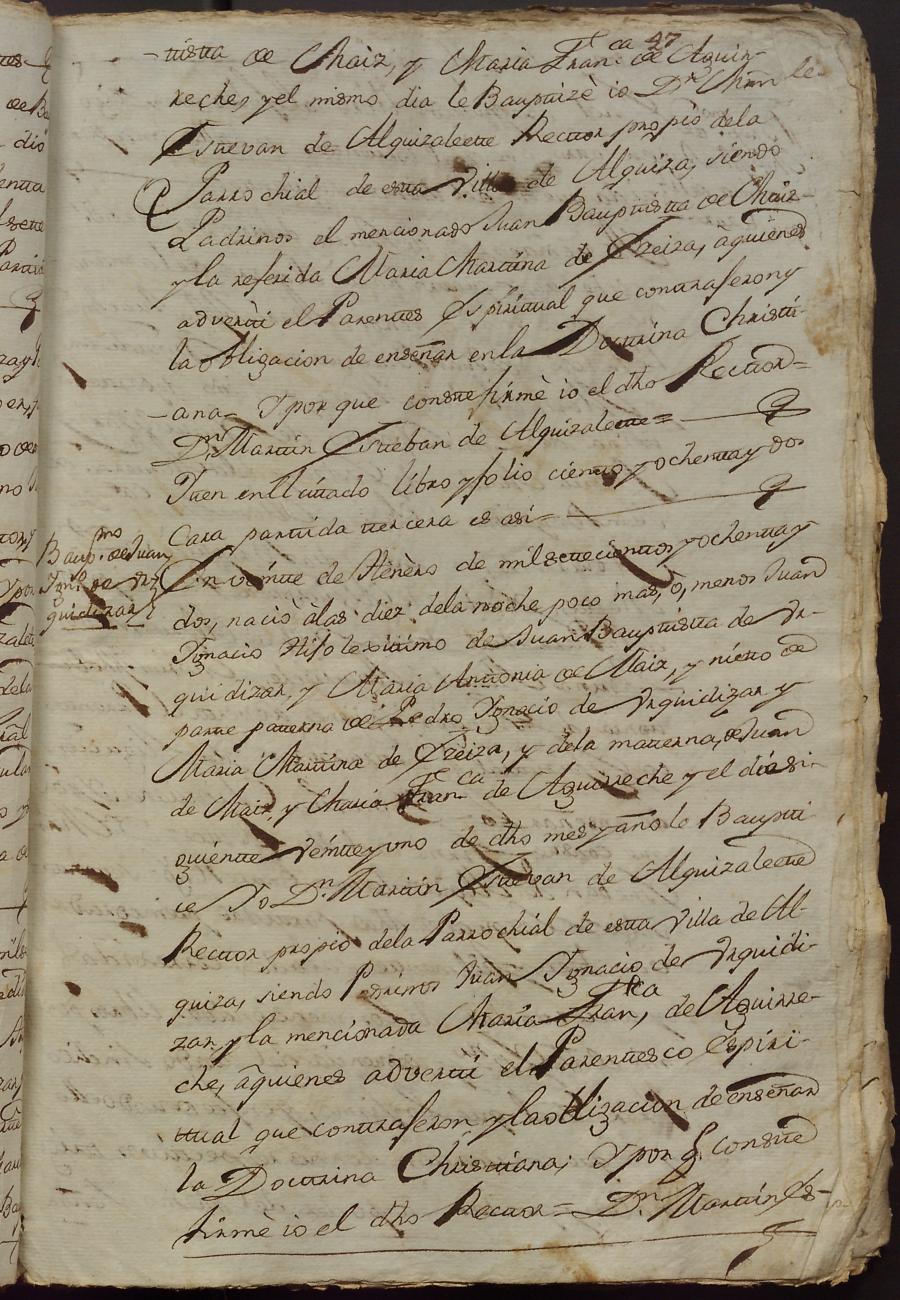 47
-tista de Maiz, y Maria Fran.ca de Aguir-
reche, y el mismo dia le Bauptizè io D.n
Estevan de Alquizalecte Rector propio dela
Parrochial de esta Villa de Alquiza, siendo
Padrinos el mencionado Juan Bauptista de Maiz
y la referida Maria Martina de Ereiza, àquienes
advertì el Parentes Espiritual que contraferon y
la obligacion de enseñar en la Doctrina Christi-
-ana- Y por que conste firmè io el dho Rector=
D.n Martin Esteban de Alquizalecte=
Yten enel citado libro y folio ciento y ochenta y dos
Cara partida tercera es asi=
Baup.mo de Juan
Ign.o de Ur
quidizar
En veinte de Henèro de mil setecientos y ochenta y
dos, naciò àlas diez dela noche poco mas, ò, menos Juan
Ygnacio Hijo lexitimo de Juan Bauptista de Ur-
quidizar, y Maria Antonia de Maiz, y nieto de
parte paterna de Pedro Ygnacio de Urquidizar y
Maria Martina de Ereiza, y dela materna, de Juan
de Maiz, y Maria Fran.ca de Aguirreche y el dia si-
guiente veinte y uno de dho mes y año le Baupti
ce Yo D.n Martin Estevan de Alquizalecte
Rector propio dela Parrochial de esta Villa de Al-
quiza, siendo Padrinos Juan Ygnacio de Urquidi-
zar, y la mencionada Maria Fran.ca de Aguirre-
che, àquienes advertì el Parentesco espiri-
tual que contraferon y la obligacion de enseñar
la Doctrina Christiana; Y por q conste
firmè io el dho Rector= D.n Martin Es-